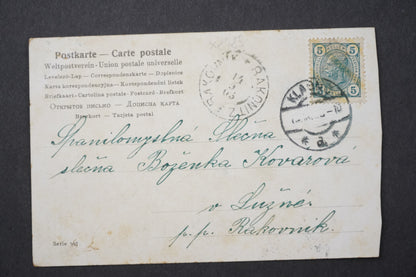 Postkarte — Carte postale
Weltpostverein - Union postale universelle
Levelező-Lap — Correspondenzkarte — Dopisnice
Karta korrespondencyjna — Korespondenční lístek
Briefkaart - Cartolina postale - Postcard - Brefkort
Открытое письмо — Дописна карта
Brevkort — Tarjeta postal
RAKONITZ
RAKOVNÍK
5 5
5 5
KLADNO
Spanilomyslná Slečna
slečna Boženka Kovarová
v Lužné
p. p. Rakovník.
Serie